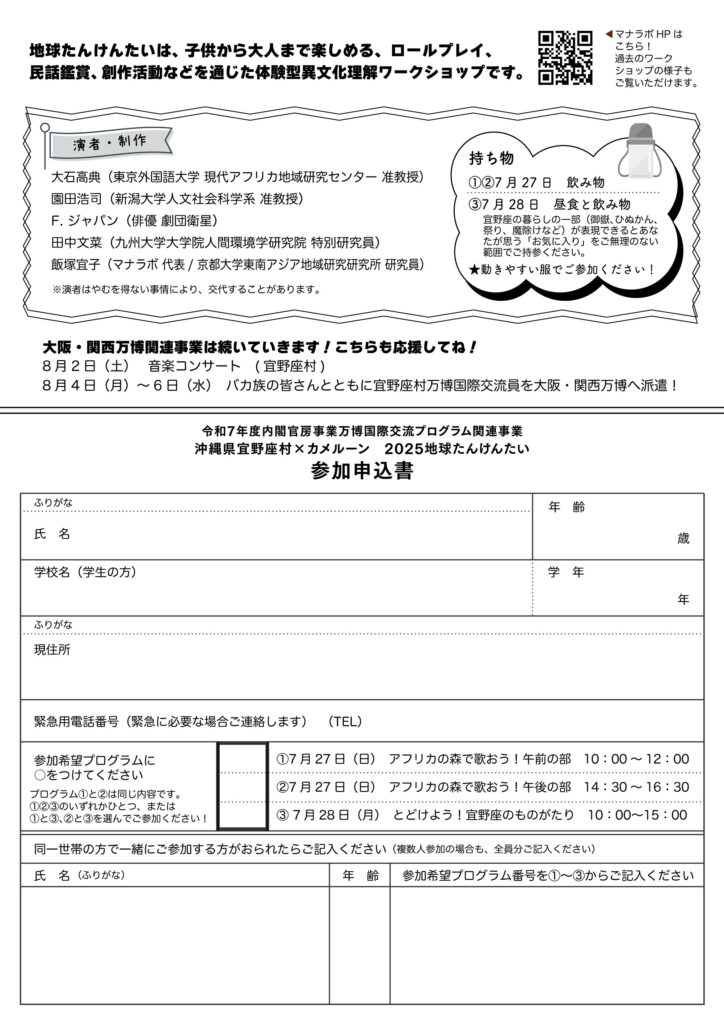 地球たんけんたいは、子供から大人まで楽しめる、ロールプレイ、
民話鑑賞、創作活動などを通じた体験型異文化理解ワークショップです。
◀マナラボ HP は
こちら！
過去のワーク
ショップの様子も
ご覧いただけます。
演者・制作
大石高典（東京外国語大学 現代アフリカ地域研究センター 准教授）
園田浩司（新潟大学人文社会科学系 准教授）
F. ジャパン（俳優 劇団衛星）
田中文菜（九州大学大学院人間環境学研究院 特別研究員）
飯塚宜子（マナラボ 代表 / 京都大学東南アジア地域研究研究所 研究員）
※演者はやむを得ない事情により、交代することがあります。
持ち物
①②7 月 27 日　飲み物
③7 月 28 日　昼食と飲み物
宜野座の暮らしの一部（御嶽、ひぬかん、
祭り、魔除けなど）が表現できるとあな
たが思う「お気に入り」をご無理のない
範囲でご持参ください。
★動きやすい服でご参加ください！
大阪・関西万博関連事業は続いていきます！こちらも応援してね！
８月２日（土）　音楽コンサート　( 宜野座村 )
８月４日（月）～６日（水）　バカ族の皆さんとともに宜野座村万博国際交流員を大阪・関西万博へ派遣！
令和７年度内閣官房事業万博国際交流プログラム関連事業
沖縄県宜野座村×カメルーン　2025地球たんけんたい
参加申込書
ふりがな
氏　名
年　齢
歳
学校名（学生の方）
学　年
年
ふりがな
現住所
緊急用電話番号（緊急に必要な場合ご連絡します）　（TEL）
参加希望プログラムに
○をつけてください
プログラム①と②は同じ内容です。
①②③のいずれかひとつ、または
①と③、②と③を選んでご参加ください！
①7 月 27 日（日）　アフリカの森で歌おう！午前の部　10：00 ～ 12：00
②7 月 27 日（日）　アフリカの森で歌おう！午後の部　14：30 ～ 16：30
③ 7 月 28 日（月）　とどけよう！宜野座のものがたり　10：00～15：00
同一世帯の方で一緒にご参加する方がおられたらご記入ください（複数人参加の場合も、全員分ご記入ください）
氏　名（ふりがな）
年　齢
参加希望プログラム番号を①～③からご記入ください